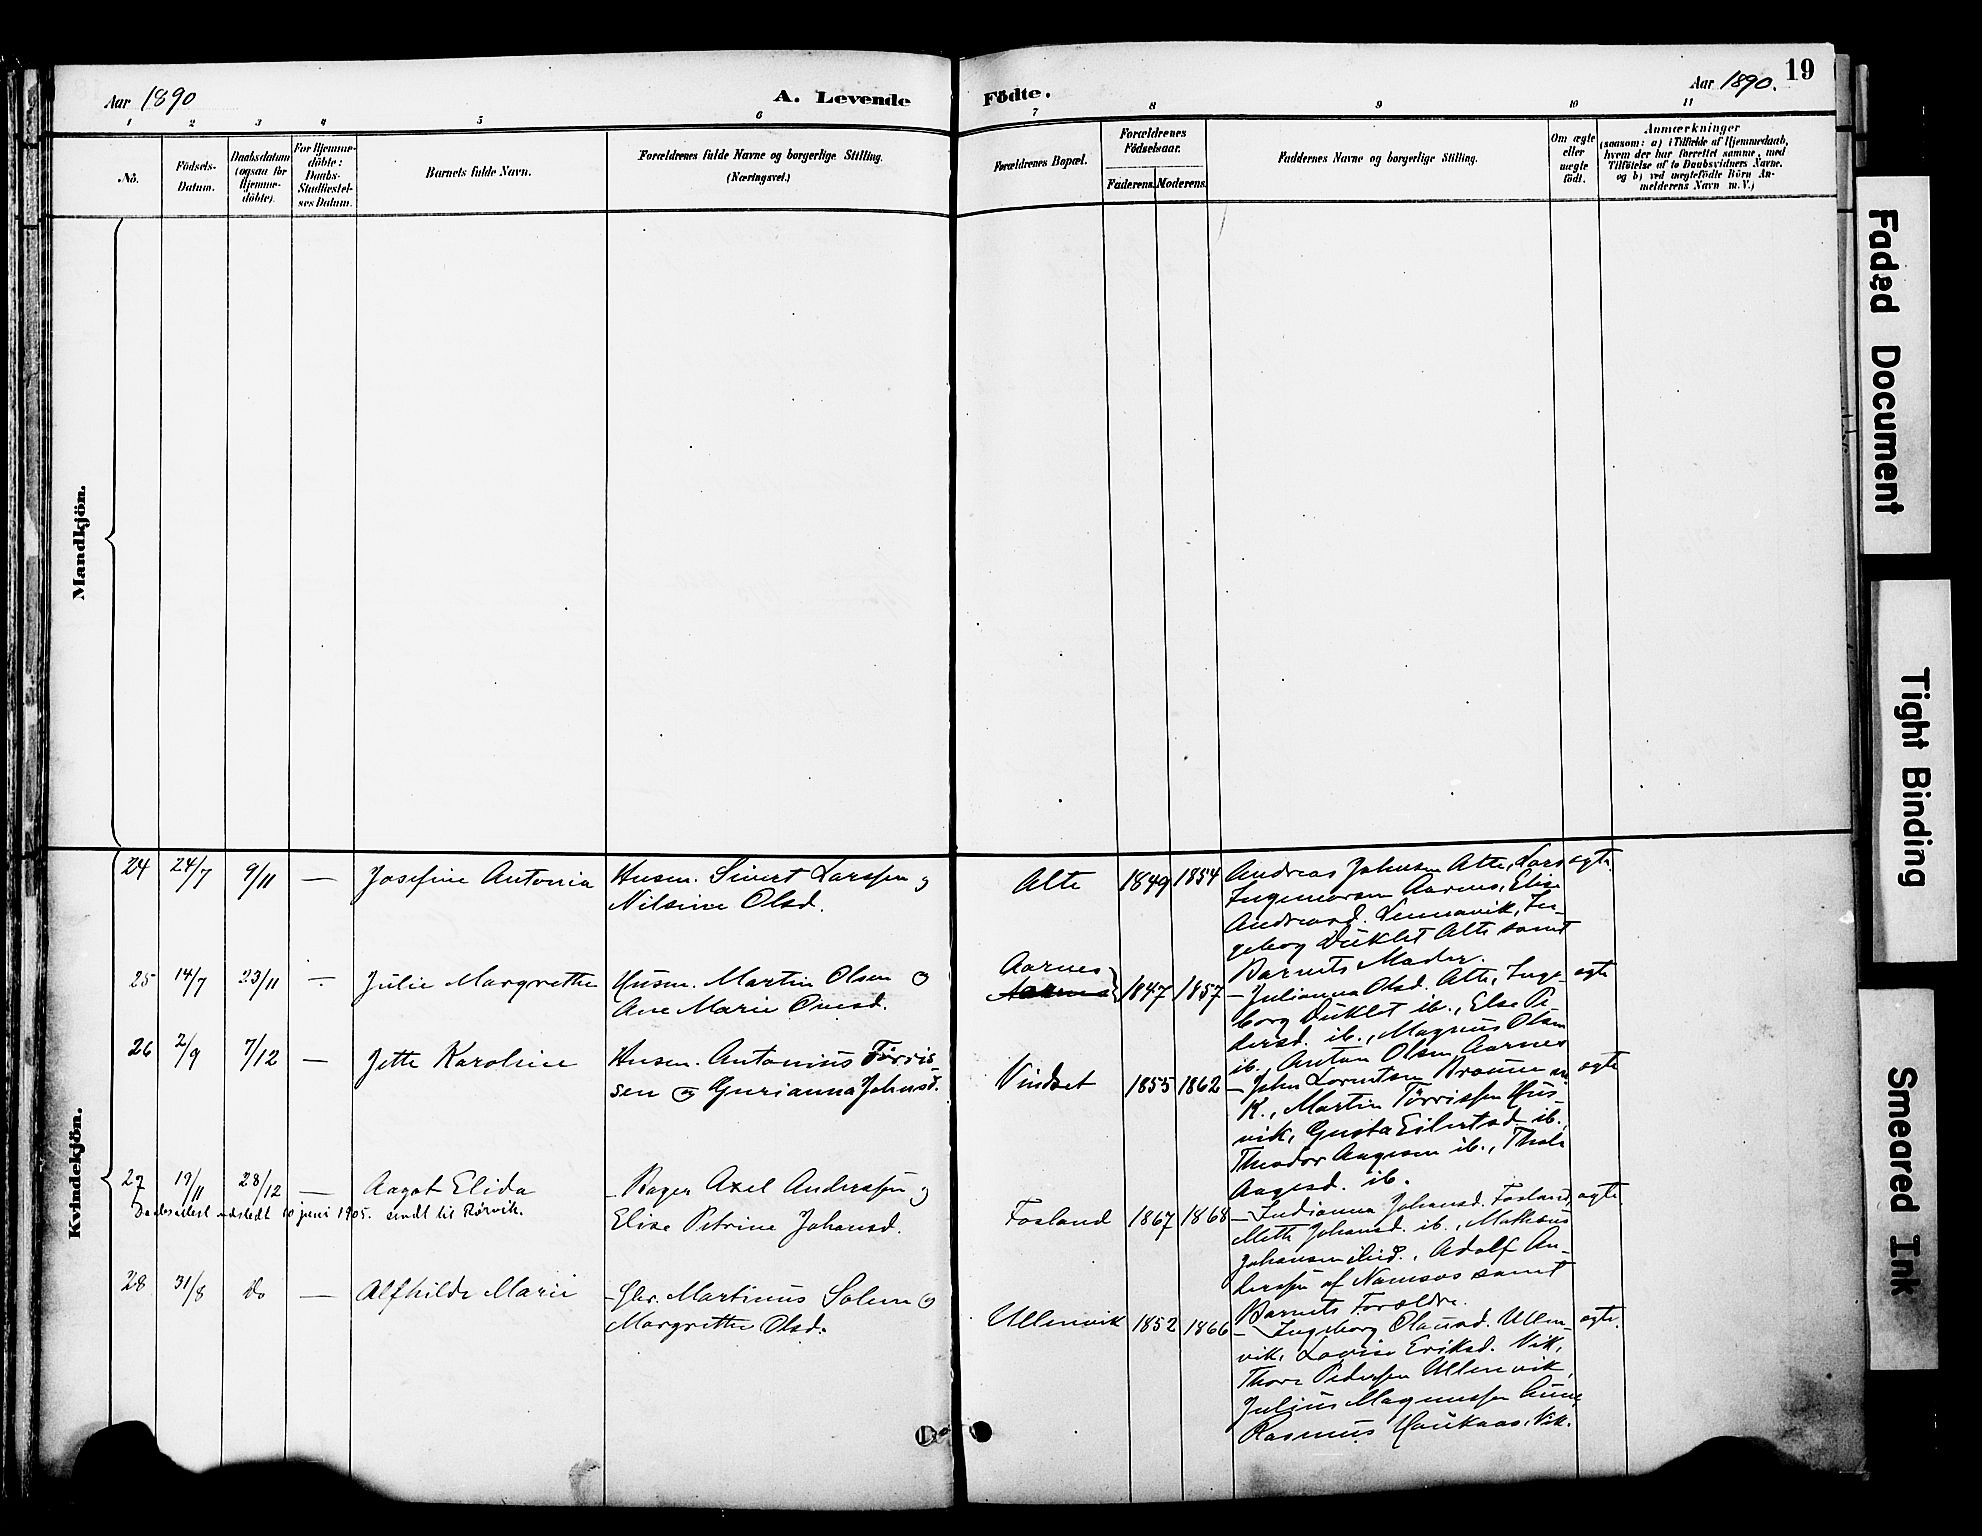 Aar 1890
A. Levende
Födte.
Aar 1890.
19
1 2 3 4 5 6 7 8 9 10 11
No.
Födsels-
Datum.
Daabsdatum
(ogsaa for
Hjemme-
döbte).
For Hjemme-
döbte:
Daabs-
Stadfæstel-
ses Datum.
Barnets fulde Navn.
Forældrenes fulde Navne og borgerlige Stilling.
(Næringsvei.)
Forældrenes Bopæl.
Forældrenes
Födselsaar.
Faderens. Moderens.
Faddernes Navne og borgerlige Stilling.
Om ægte
eller
uægte
födt.
Anmærkninger
(saasom: a) i Tilfælde af Hjemmedaab,
hvem der har forrettet samme, med
Tilföielse af to Daabsvidners Navne.
og b) ved uægtefödte Börn An-
melderens Navn m. V.)
Mandkjön.
Kvindekjön.
24 24/7 9/11 — Josefine Antonia
Husm. Sivert Larssen og
Nilsine Olsd.
Alte 1849 1854
Andreas Johnsen Alte, Lars
Ingemarsen Aarnes, Elise
Andreasd. Lennavik, In-
geborg Duklet Alte samt
Barnets Moder.
ægte.
25 14/7 23/11 — Julie Margrethe
Husm. Martin Olsen og
Ane Marie Onesd.
Aarnes
1847 1857
— Julianna Olsd. Alte, Inge-
borg Duklet ib., Else Pe-
dersd. ib., Magnus Olsen
ib., Anton Olsen Aarnes
ægte
26 2/9 7/12 — Jette Karoline
Husm. Antonius Törris-
sen og Gurianna Johnsd.
Vindset 1855 1862
— John Lorentsen
K., Martin Törrissen Hus-
vik, Gusta Eilertsd. ib.,
Theodor Aagesen ib., Thale
Aagesd. ib.
ægte
27 19/11 28/12 — Aagot Elida
Daabsattest udstedt 10 juni 1905. sendt til Rörvik.
— Bager Axel Anderssen og
Elise Petrine Johansd.
Fosland 1867 1868
— Indianna Johansd. Fosland,
Mette Johansd. ib., Mathæus
Johansen ibid., Adolf An-
derssen af Namsos samt
Barnets Forældre.
ægte.
28 31/8 do — Alfhilde Marie
— Gbr. Martinus Solem og
Margrethe Olsd.
Ullenvik 1852 1866
— Ingeborg Olausd. Ullen-
vik, Lovise Eriksd. Vik,
Thore Pedersen Ullenvik,
Julius Magnussen Aune,
Rasmus Haukaas, Vik.
ægte.
Faded Document
Tight Binding
Smeared Ink